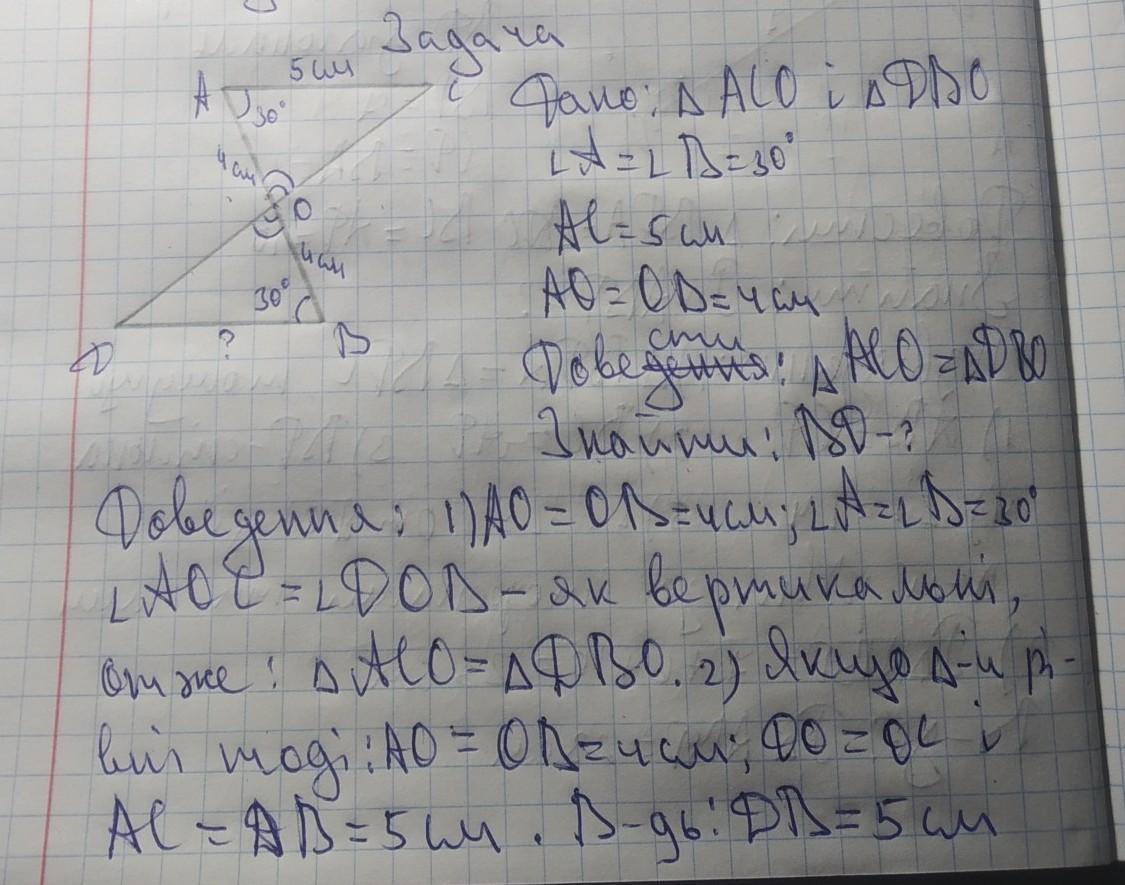 Задача
5 см
A
C
30°
4 см
O
4 см
30°
D
?
B
Дано: △ ACO і △ DBO
∠A = ∠B = 30°
AC = 5 см
AO = OB = 4 см
Доведення сти: △ ACO = △DBO
Знайти: BD - ?
Доведення: 1) AO = OB = 4 см; ∠A = ∠B = 30°
∠AOC = ∠DOB – як вертикальні,
отже: △ ACO = △DBO. 2) Якщо △-и рі-
вні тоді: AO = OB = 4 см; DO = OC і
AC = DB = 5 см. В-дь: DB = 5 см